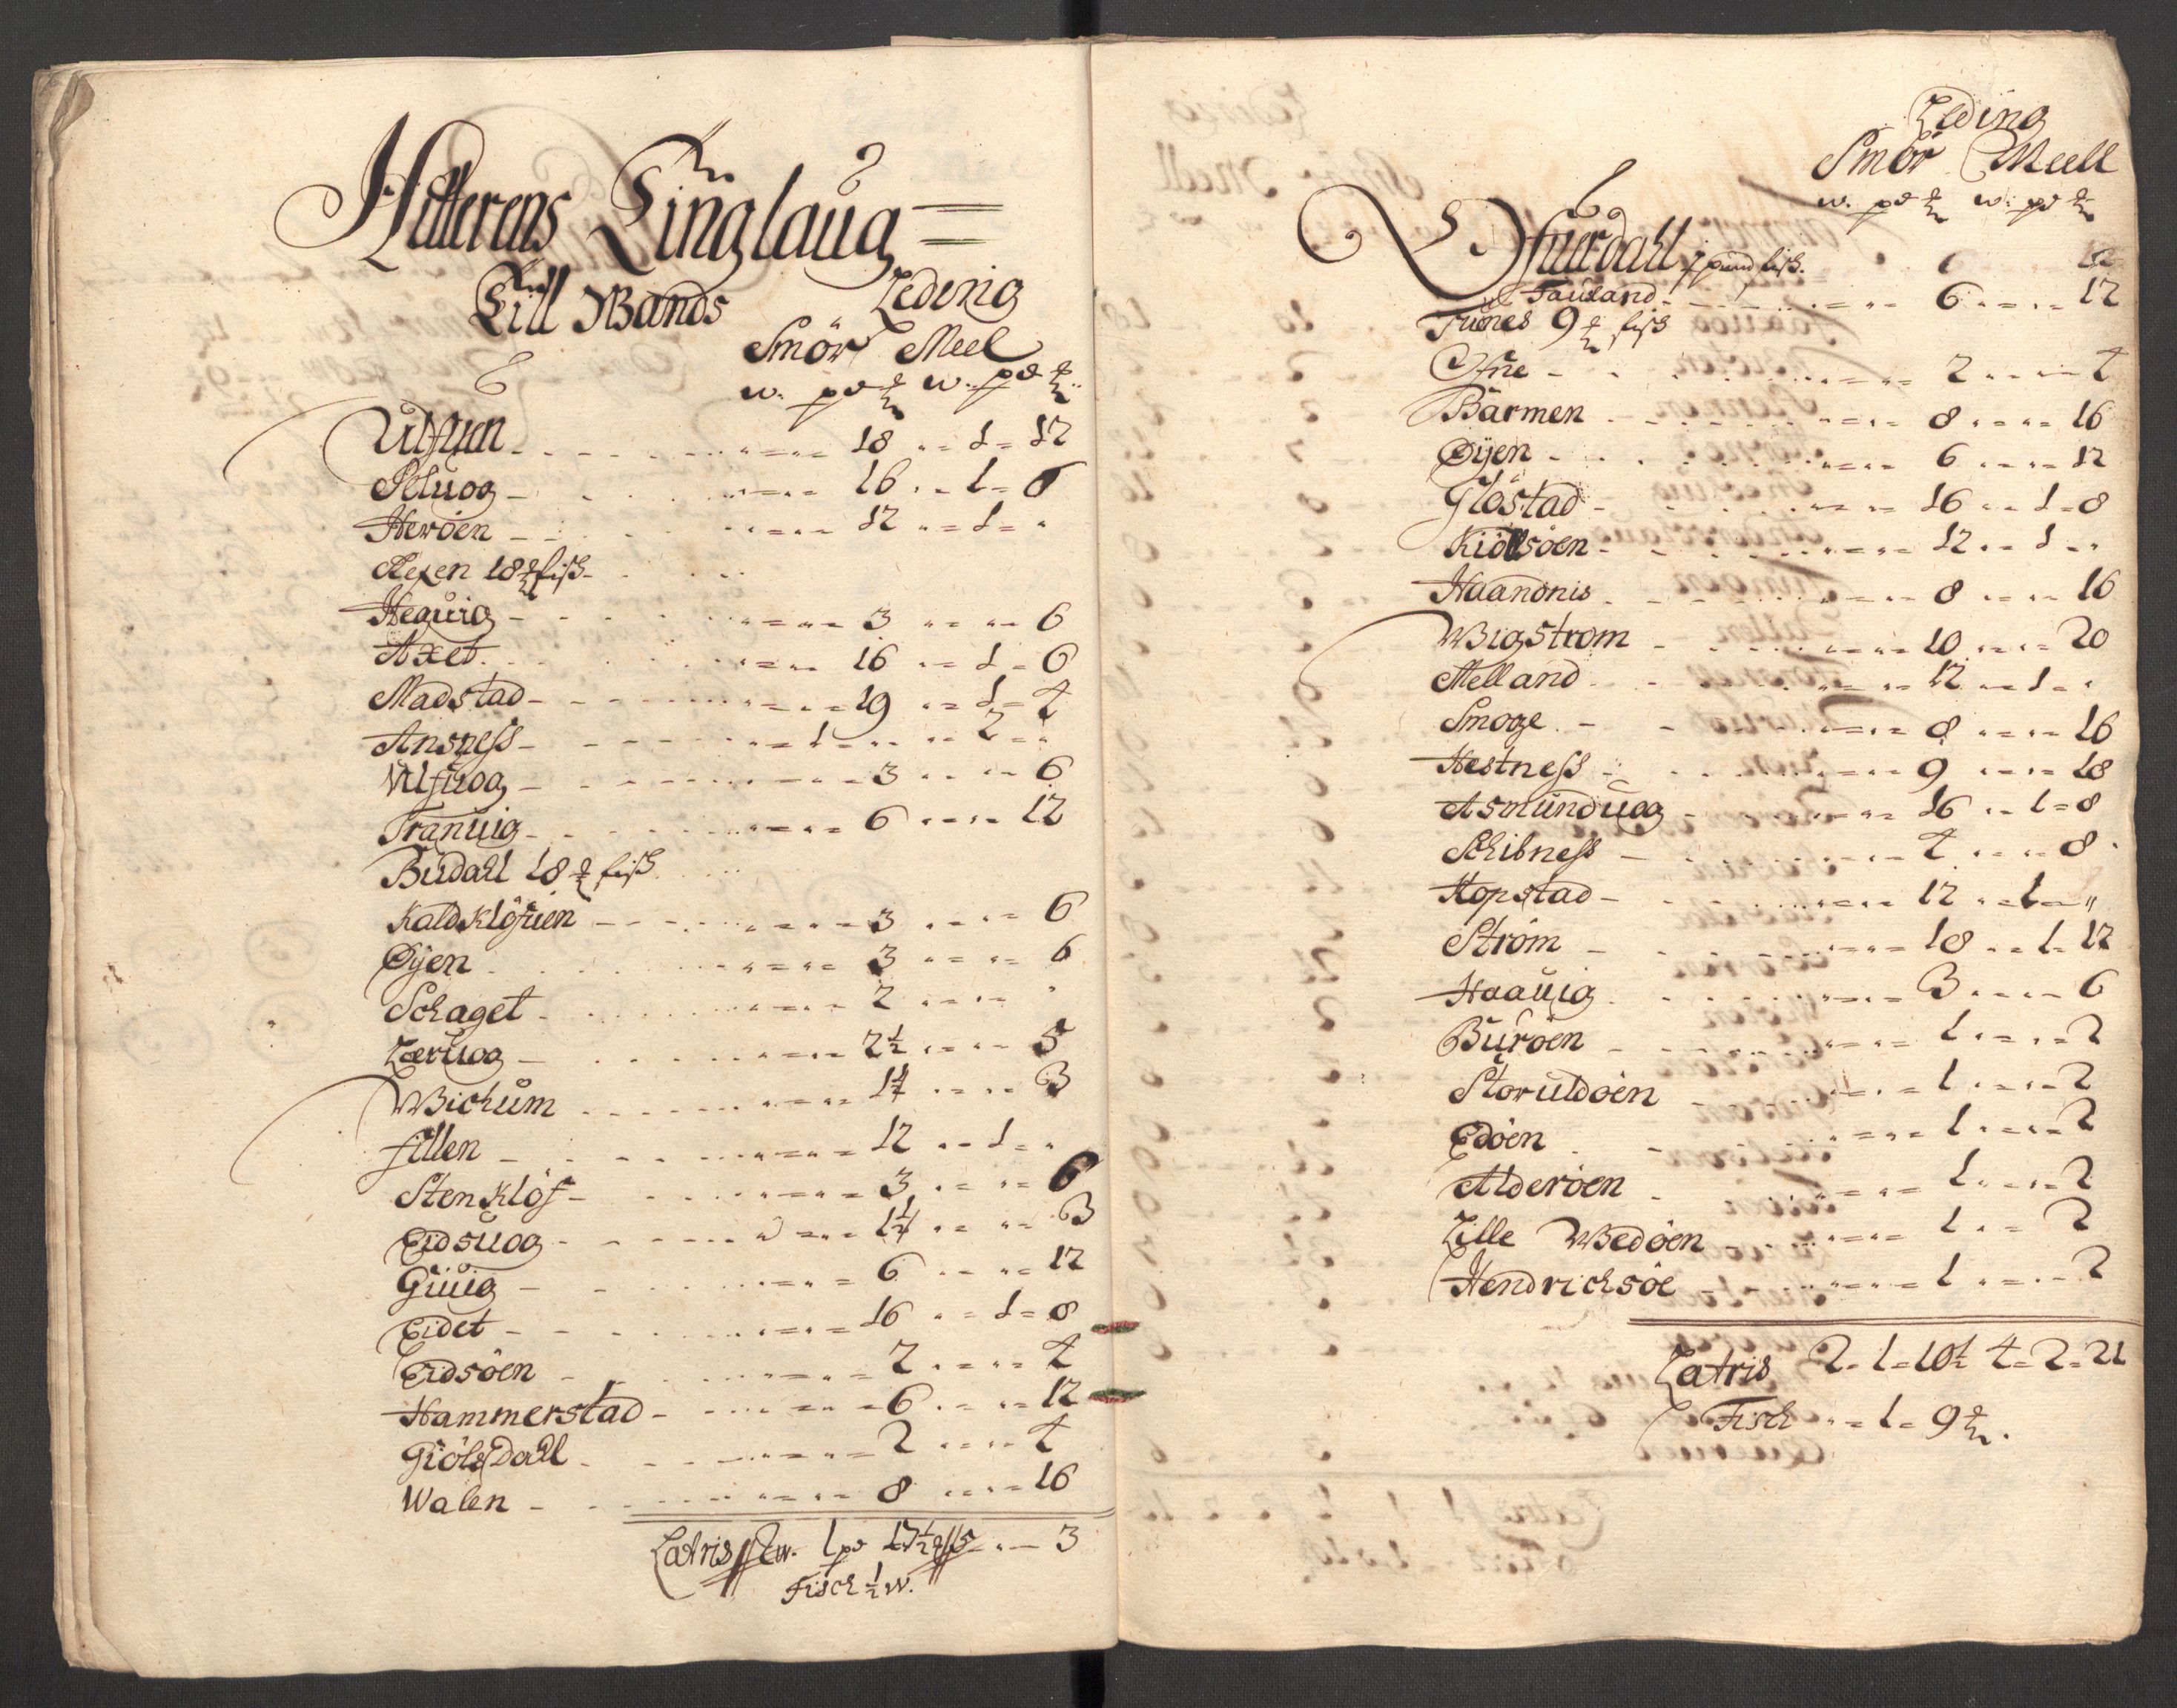 Hitterens Tinglaug
Till Wands Leding
Smör Meel
w. pd ℔ w. pd ℔
Ulfuen 18 1 12
Seluog 16 1 8
Heröen 12 1 "
Rexen 18 ℔ fisk
Heguig 3 6
Axet 16 1 6
Madstad 19 1 4
Ansness 1 2
Ulfuog 3 6
Tranuig 6 12
Budall 18 ℔ fisk
Kaldklöfuen 3 6
Øyen 3 6
Schaget 2 "
Leruog 2½ 5
Wickum 1½ 3
fillen 12 1 "
Stenklöf 3 6
Eidsuog 1½ 3
Giuig 6 12
Eidet 16 1 8
Eidsöen 2 4
Hammerstad 6 12
Giölsdall 2 4
Walen 8 16
Latris 2 w. 1 pd 17½ ℔ 5 " 3
Fisch ½ w.
Leding
Smör Meell
w. pd ℔ w. pd ℔
Ofuerdall 1 pund fisk.
Fauland 6 12
Tunes 9 ℔ fisk
Ofne 2 4
Barmen 8 16
Øyen 6 12
Glöstad 16 1 8
Kiölsöen 12 1 "
Haandnis 8 16
Wigstrom 10 20
Melland 12 1 "
Smoge 8 16
Hestness 9 18
Asmunduog 16 1 8
Schibness 4 8
Kopstad 12 1 "
Ström 18 1 12
Haauig 3 6
Buröen 1 2
Storuldöen 1 2
Edöen 1 2
Alderöen 1 2
Lille Wedöen 1 2
Hendrichsöe 1 2
Latris 2 1 10½ 4 2 21
Fisch " 1 9 ℔.